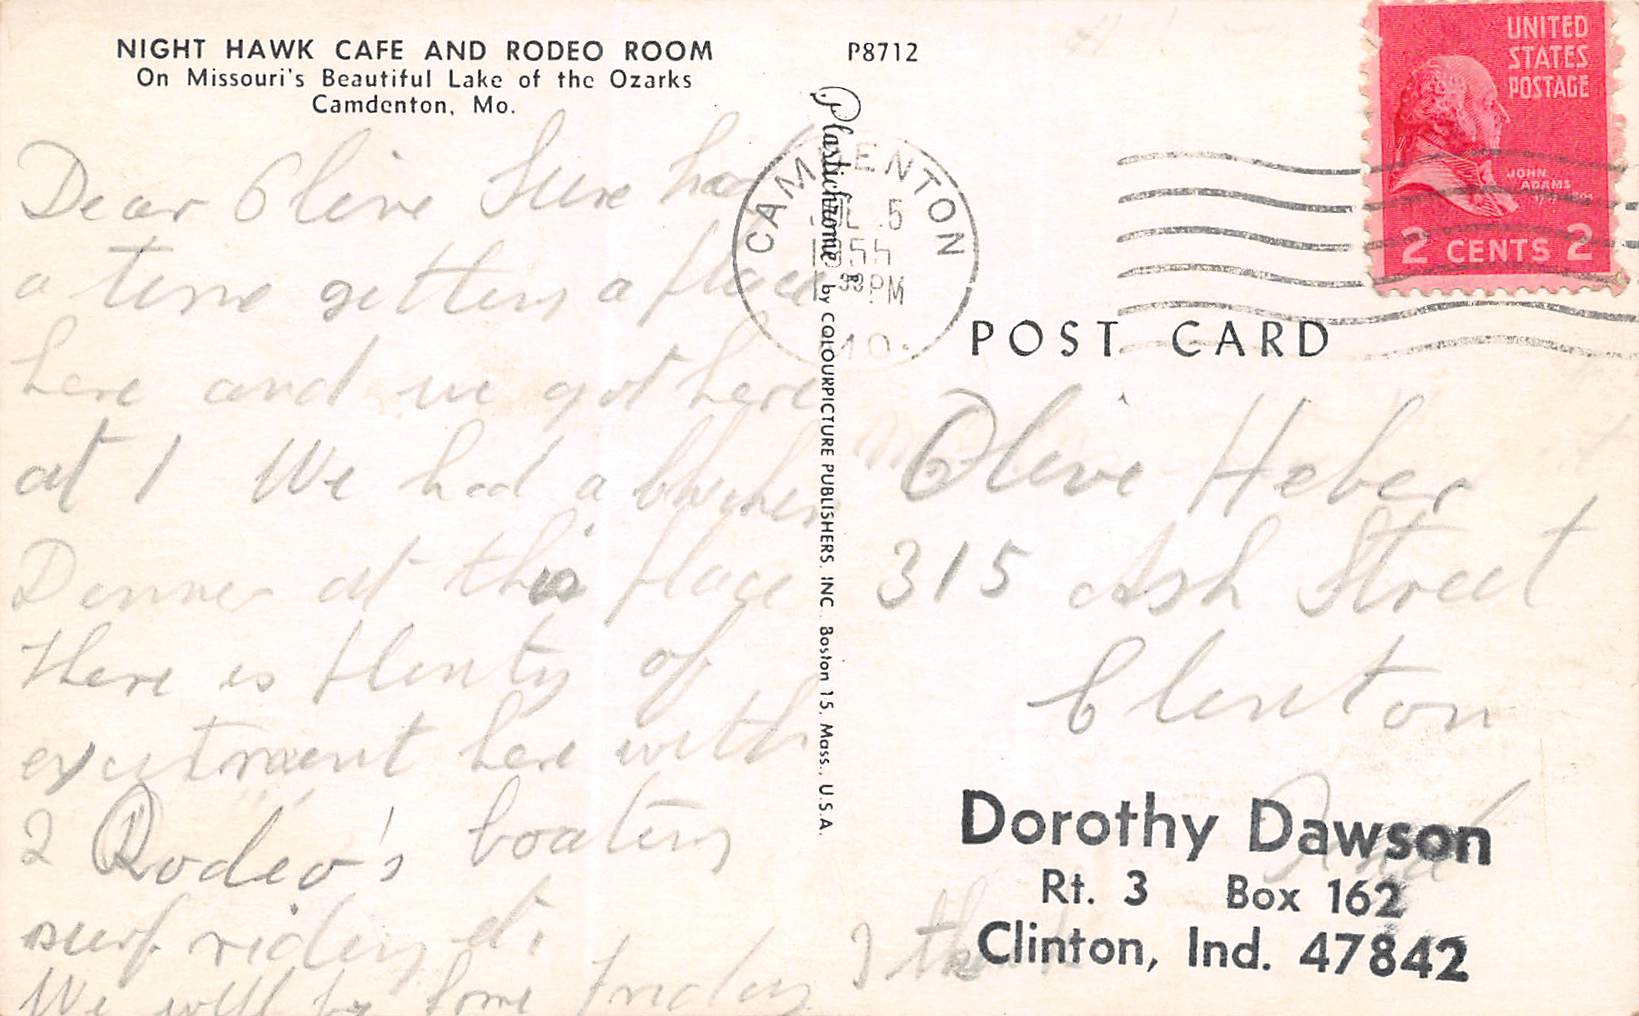 NIGHT HAWK CAFE AND RODEO ROOM
On Missouri's Beautiful Lake of the Ozarks
Camdenton, Mo.
P8712
UNITED
STATES
POSTAGE
JOHN
ADAMS
2 CENTS 2
CAMDENTON
JUL 5
1955
PM
MO.
Plastichrome ® by COLOURPICTURE PUBLISHERS, INC. Boston 15, Mass., U.S.A.
POST CARD
Dear Olive Sure had
a time getting a place
here and we got here
at 1 We had a
Dinner at this place
There is plenty of
excitment here with
2 Rodeo's boating
surf riding etc
We will be home friday I think
Olive Heber
315 Ash Street
Clinton
Ind
Dorothy Dawson
Rt. 3 Box 162
Clinton, Ind. 47842